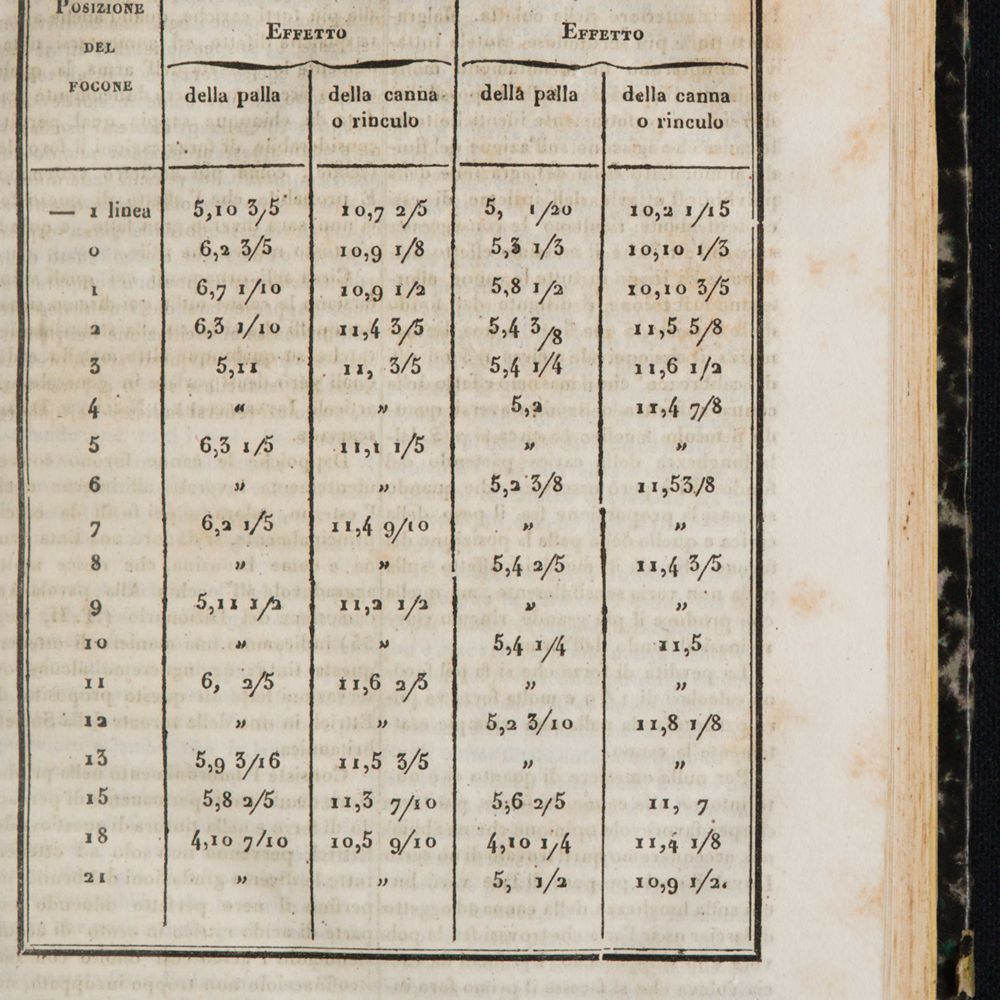 Posizione
del
focone
Effetto Effetto
della palla della canna della palla della canna
o rinculo o rinculo
— 1 linea 5,10 3/5 10,7 2/5 5, 1/20 10,2 1/15
0 6,2 3/5 10,9 1/8 5,3 1/3 10,10 1/3
1 6,7 1/10 10,9 1/2 5,8 1/2 10,10 3/5
2 6,3 1/10 11,4 3/5 5,4 3/8 11,5 5/8
3 5,11 11, 3/5 5,4 1/4 11,6 1/2
4 « » 5,2 11,4 7/8
5 6,3 1/5 11,1 1/5 » »
6 » » 5,2 3/8 11,53/8
7 6,2 1/5 11,4 9/10 » »
8 » » 5,4 2/5 11,4 3/5
9 5,11 1/2 11,2 1/2 » »
10 » » 5,4 1/4 11,5
11 6, 2/5 11,6 2/5 » »
12 » » 5,2 3/10 11,8 1/8
13 5,9 3/16 11,5 3/5 » »
15 5,8 2/5 11,3 7/10 5,6 2/5 11, 7
18 4,10 7/10 10,5 9/10 4,10 1/4 11,4 1/8
21 » » 5, 1/2 10,9 1/2.